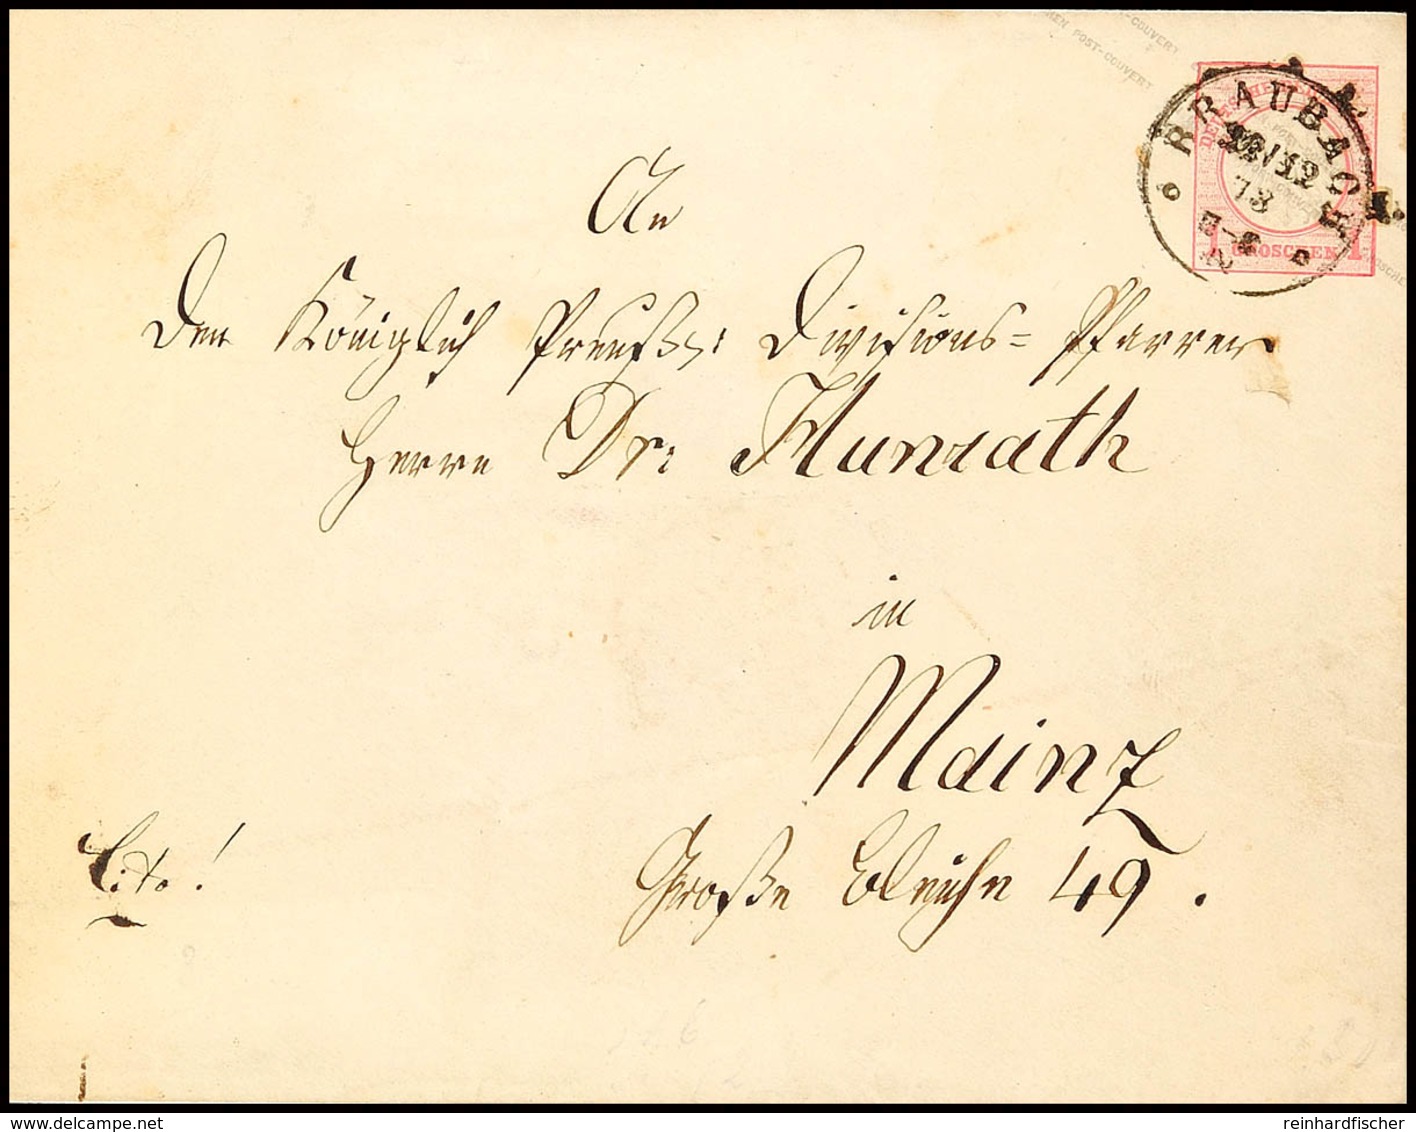 POST-COUVERT
POST-COUVERT
BRAUBACH
12
73
1 GROSCHEN 1
An
Den Königlich Preußs: Divisions= Pfarrer
Herrn Dr: Hunrath
in
Mainz
Große Bleiche 49.
Cito!
delcampe.net
reinhardfischer